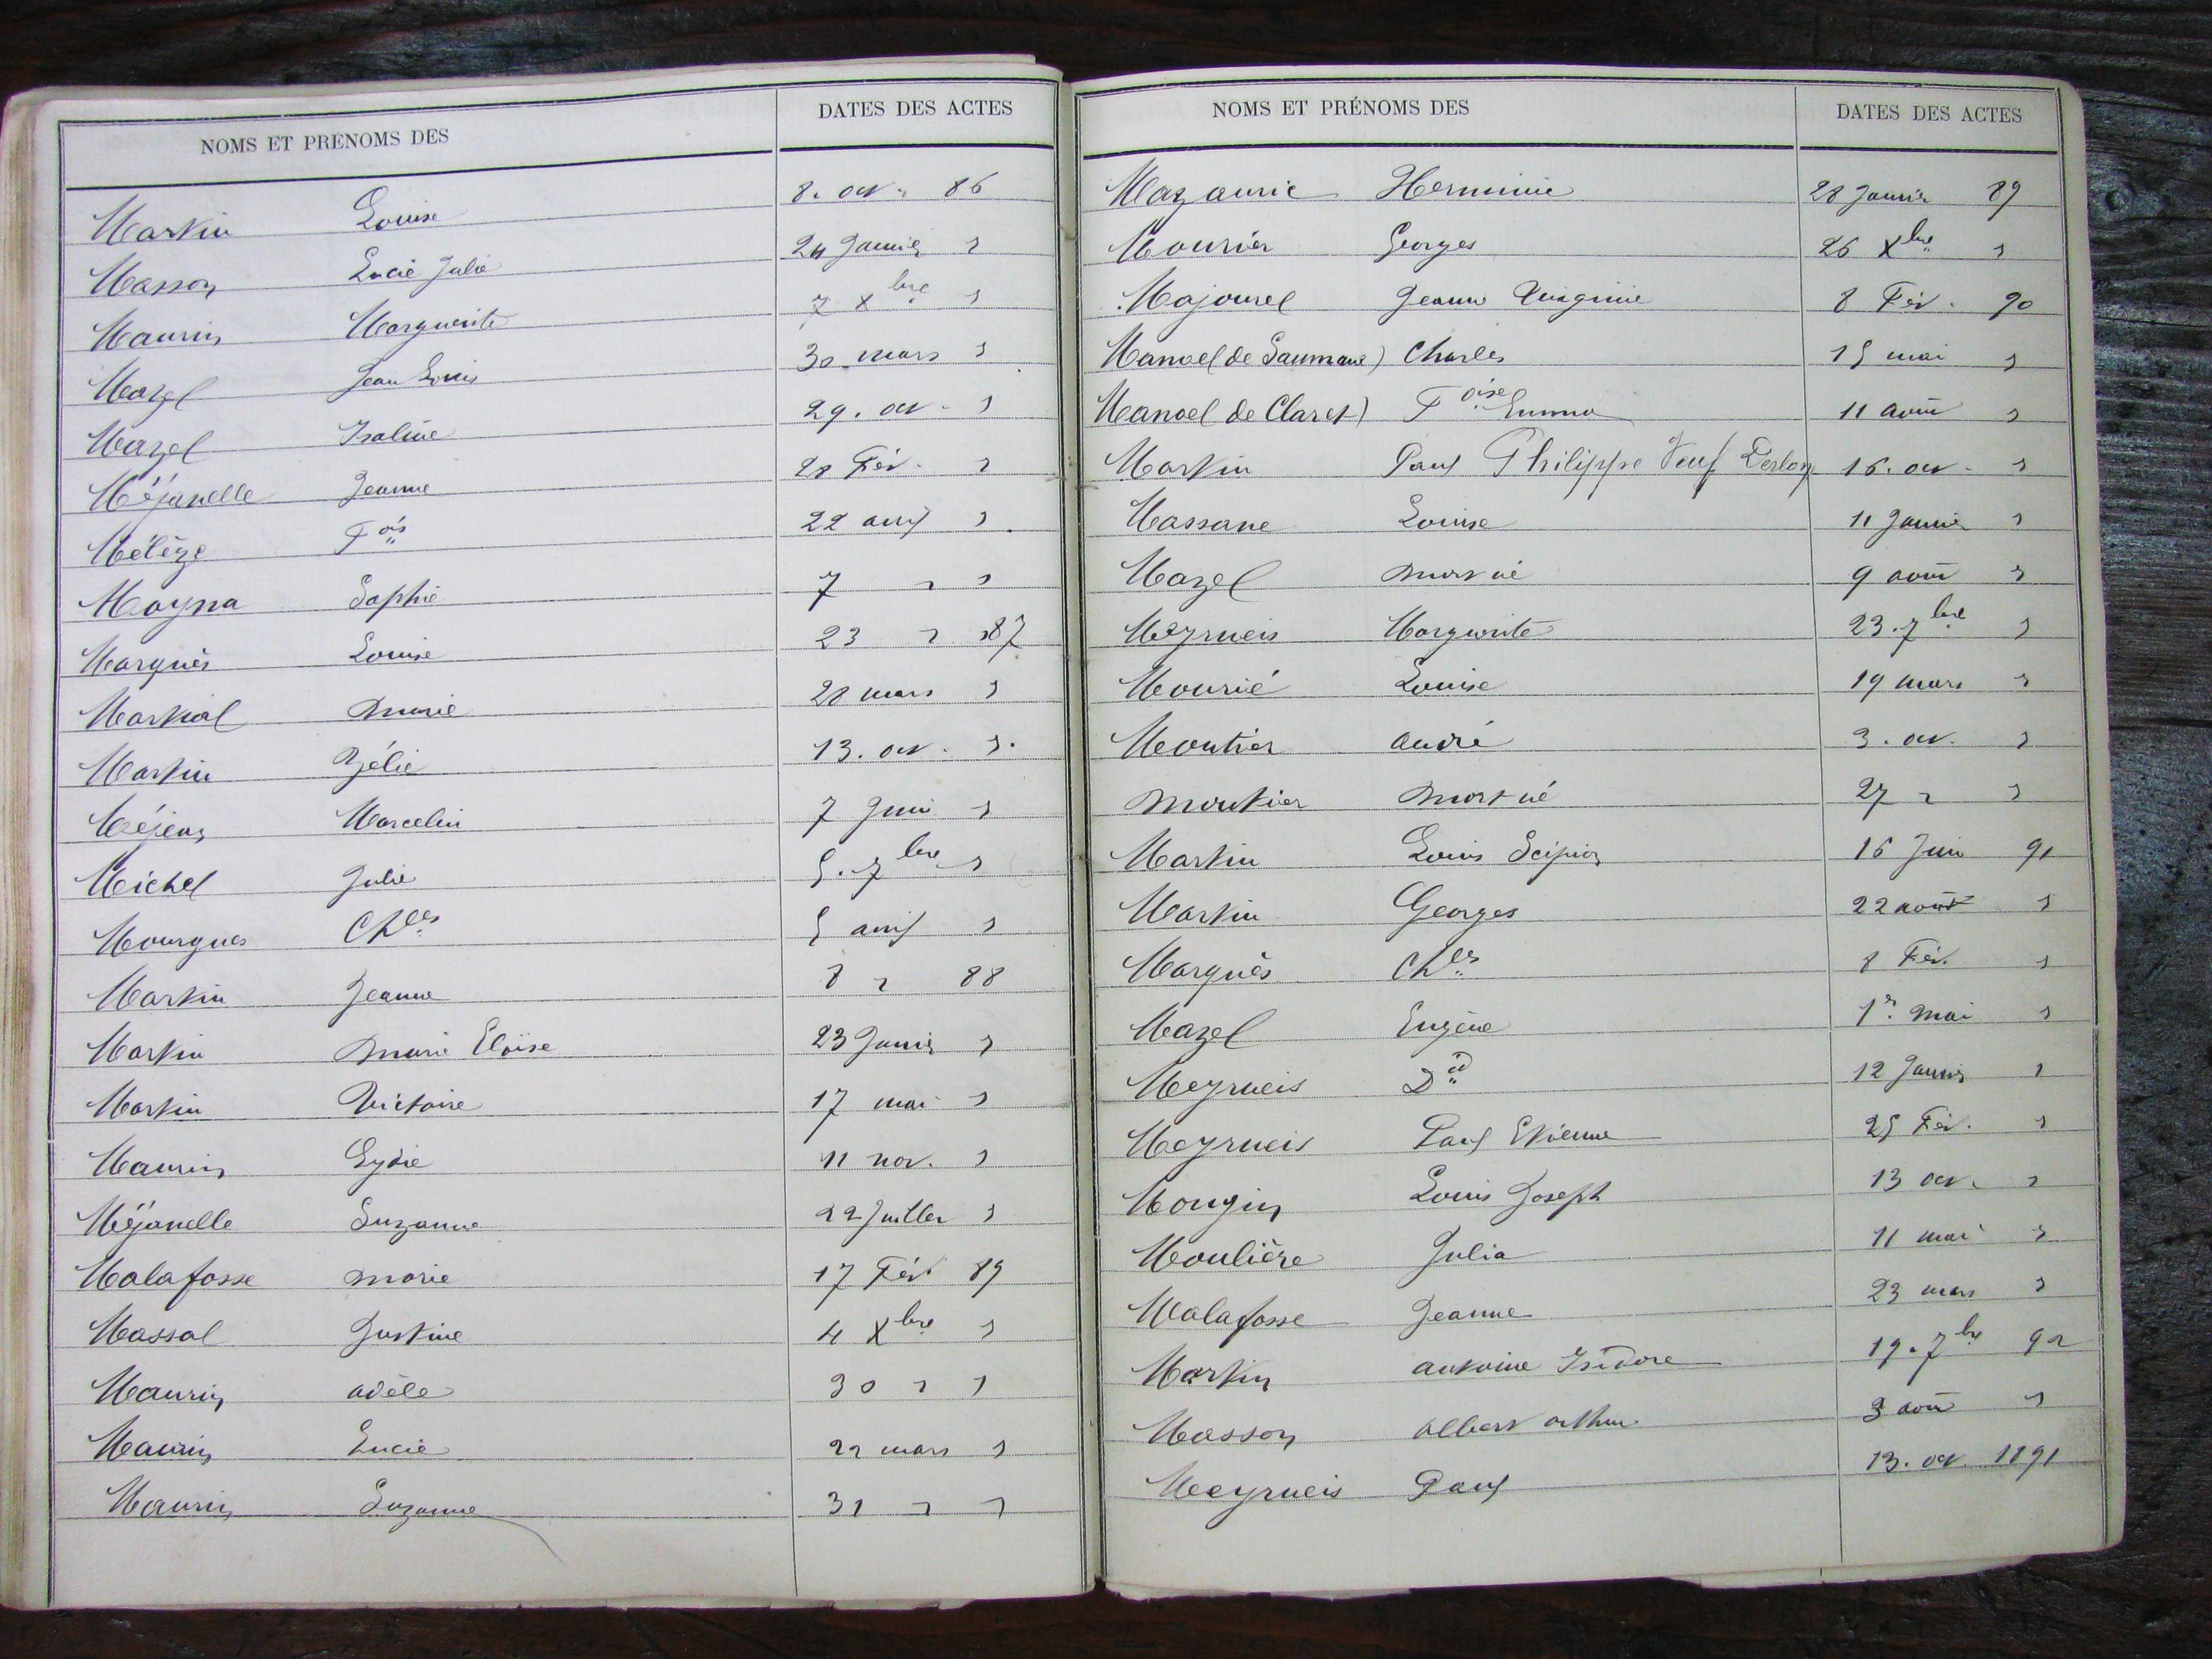 NOMS ET PRENOMS DES DATES DES ACTES
Martin Louise 8. oct. 86
Masson Lucie Julie 24 Janvier "
Maurin Marguerite 7 Xbre "
Mazel Jean Louis 30 mars "
Mazel Isaline 29. oct. "
Méjanelle Jeanne 28 Fév. "
Mélèze Fois 22 avril "
Moyna Sophie 7 " "
Marquès Louise 23 " 87
Martial Marie 28 mars "
Martin Zélie 13. oct. "
Méjean Marcelin 7 Juin "
Michel Julie 5. 7bre "
Mourgues Chles 5 avril "
Martin Jeanne 8 " 88
Martin Marie Eloïse 23 Janvier "
Martin Victoire 17 mai "
Maurin Lydie 11 nov. "
Méjanelle Suzanne 22 Juillet "
Malafosse Marie 17 Fév. 89
Massal Justine 4 Xbre "
Maurin Adèle 30 " "
Maurin Lucie 22 mars "
Maurin Suzanne 31 " "
NOMS ET PRÉNOMS DES DATES DES ACTES
Mazauric Herminie 28 Janvier 89
Mourier Georges 26 Xbre "
Majourel Jeanne Virginie 8 Fév. 90
Manoel (de Saumane) Charles 15 mai "
Manoel de Claret) Foise Emma 11 août "
Martin Paul Philippe Veuf 16. oct. "
Massane Louise 11 Janvier "
Mazel Mort né 9 août "
Meyrueis Marguerite 23. 7bre "
Mourié Louise 19 mars "
Moutier André 3. oct. "
Moutier Mort né 27 " "
Martin Louis Scipion 16 Juin 91
Martin Georges 22 août "
Marquès Chles 8 Fév. "
Mazel Eugène 1er Mai "
Meyrueis Dd 12 Janvier "
Meyrueis Paul Etienne 25 Fév. "
Mougin Louis Joseph 13 oct. "
Moulière Julia 11 mai "
Malafosse Jeanne 23 mars "
Martin Antoine Isidore 19. 7bre 92
Masson Albert Arthur 3 août "
Meyrueis Paul 13. oct. 1891